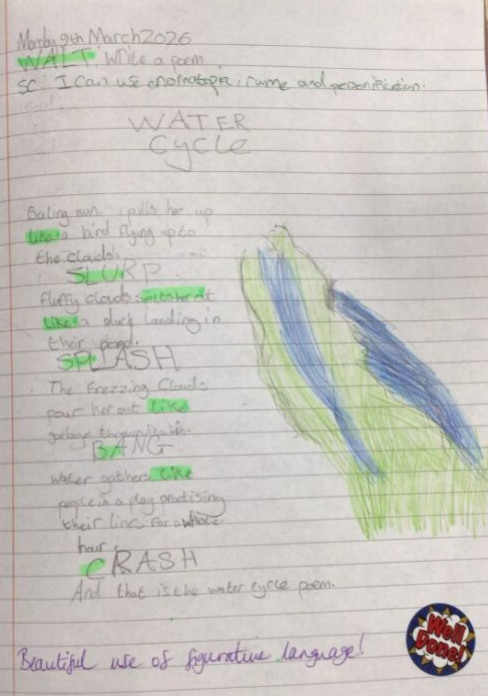 Monday 9th March 2026
WALT: Write a poem
SC: I can use onomatopia, ryme and personification.
WATER
Cycle
Boiling sun pulls her up
like a bird flying up to
the clouds.
SLURP
fluffy clouds
like a duck landing in
their pond.
SPLASH
The Frezzing Clouds
pour her out like
garbage
BANG
Water gathers like
people in a play practising
their lines for a whole
hour.
CRASH
And that is the water cycle poem.
Beautiful use of figurative language!
Well
Done!